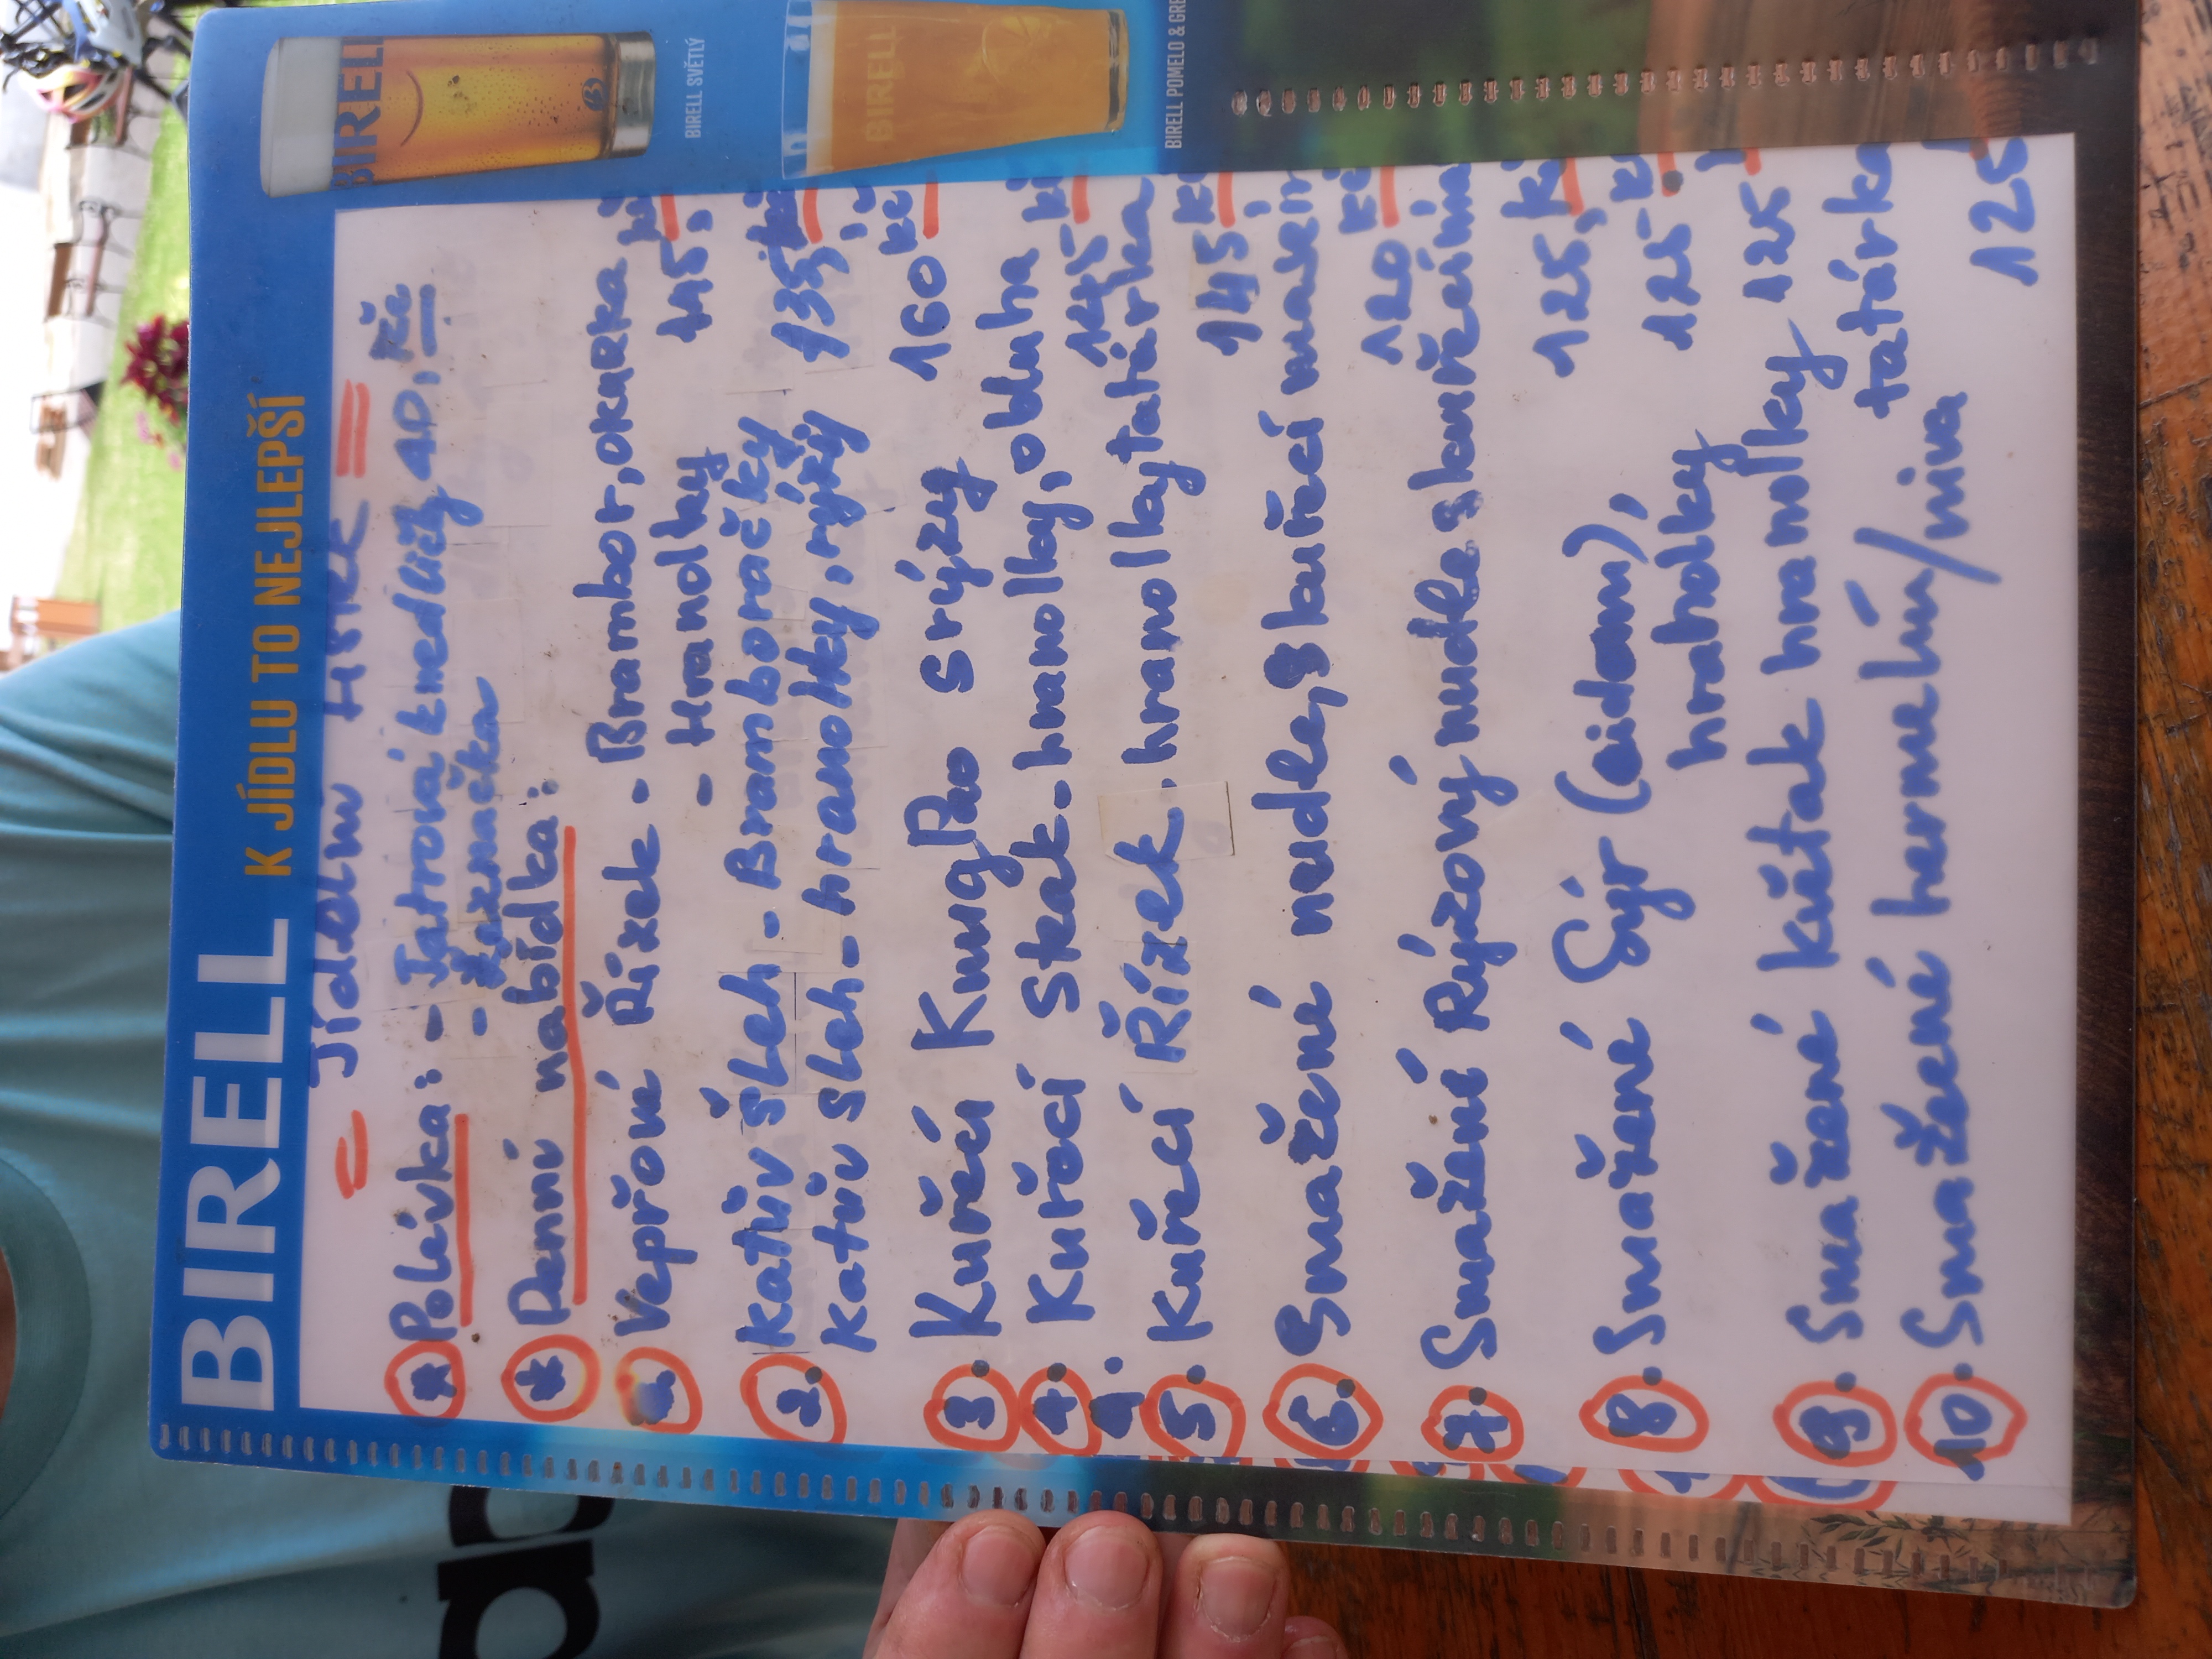 BIRELL K JÍDLU TO NEJLEPŠÍ
BIRELL
BIRELL SVĚTLÝ
BIRELL
BIRELL POMELO & GRE
Polévka: - Játrová knedlíčky 40,
Denní nabídka:
Vepřové Řízek - Brambor, okurka
- Hranolky
2. Katův Šleh - Bramboračky 135
Katův Sleh - hranolky, rýží
3. Kuřecí KungPao s rýzy 160 kč
4. Kuřecí Steak - hranolky, obluha
145
5. Kuřecí Řízek. hranolky tatárka
145
6. Smažené nudle, s kuřecí masem
120
7. Smažené Rýzový nudle s kuřecím
125,
8. Smažené Sýr (eidam),
hranolky
125
9. Smažené květak hranolky 125
tatárka
10. Smažené hermelín/niva
125